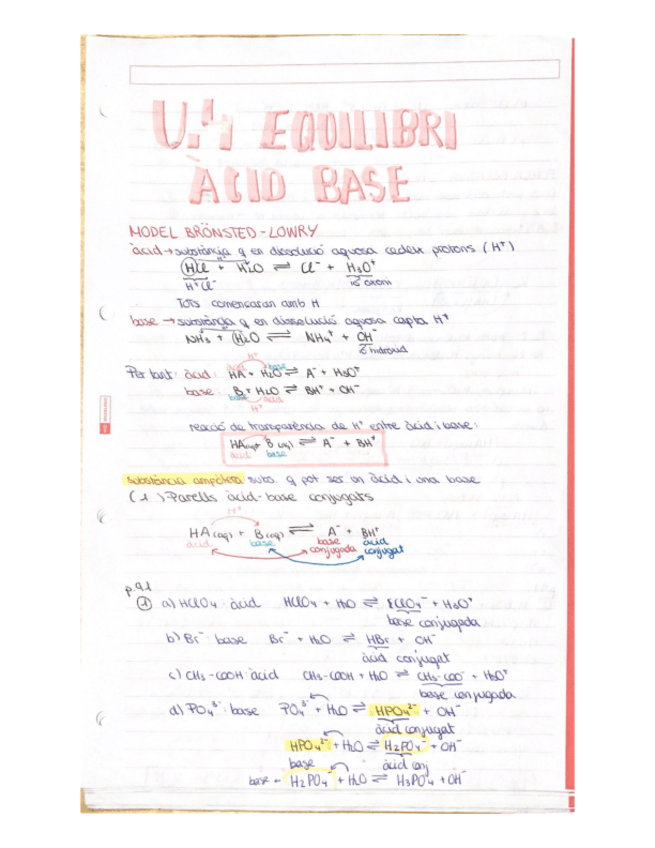 U.4 EQUILIBRI
ÀCID BASE
MODEL BRÖNSTED-LOWRY
àcid → substància q en dissolució aquosa cedeix protons (H⁺)
HCl + H₂O ⇌ Cl⁻ + H₃O⁺
H⁺Cl⁻ ió oxoni
Tots comensaran amb H
base → substància q en dissolució aquosa capta H⁺
NH₃ + H₂O ⇌ NH₄⁺ + OH⁻
ió hidròxid
H⁺
àcid base
Per tant: àcid: HA + H₂O ⇌ A⁻ + H₃O⁺
base: B + H₂O ⇌ BH⁺ + OH⁻
base àcid
H⁺
reacció de transparència de H⁺ entre àcid i base:
HA(aq) + B(aq) ⇌ A⁻ + BH⁺
àcid base
substància ampòtera subs. q pot ser un àcid i una base
(1) Parells àcid-base conjugats
H⁺
HA(aq) + B(aq) ⇌ A⁻ + BH⁺
àcid base base conjugada àcid conjugat
p.91
① a) HClO₄: àcid HClO₄ + H₂O ⇌ ClO₄⁻ + H₃O⁺
base conjugada
b) Br⁻: base Br⁻ + H₂O ⇌ HBr + OH⁻
àcid conjugat
c) CH₃-COOH: àcid CH₃-COOH + H₂O ⇌ CH₃-COO⁻ + H₃O⁺
base conjugada
d) PO₄³⁻: base PO₄³⁻ + H₂O ⇌ HPO₄²⁻ + OH⁻
àcid conjugat
HPO₄²⁻ + H₂O ⇌ H₂PO₄⁻ + OH⁻
base àcid conj
base ← H₂PO₄⁻ + H₂O ⇌ H₃PO₄ + OH⁻